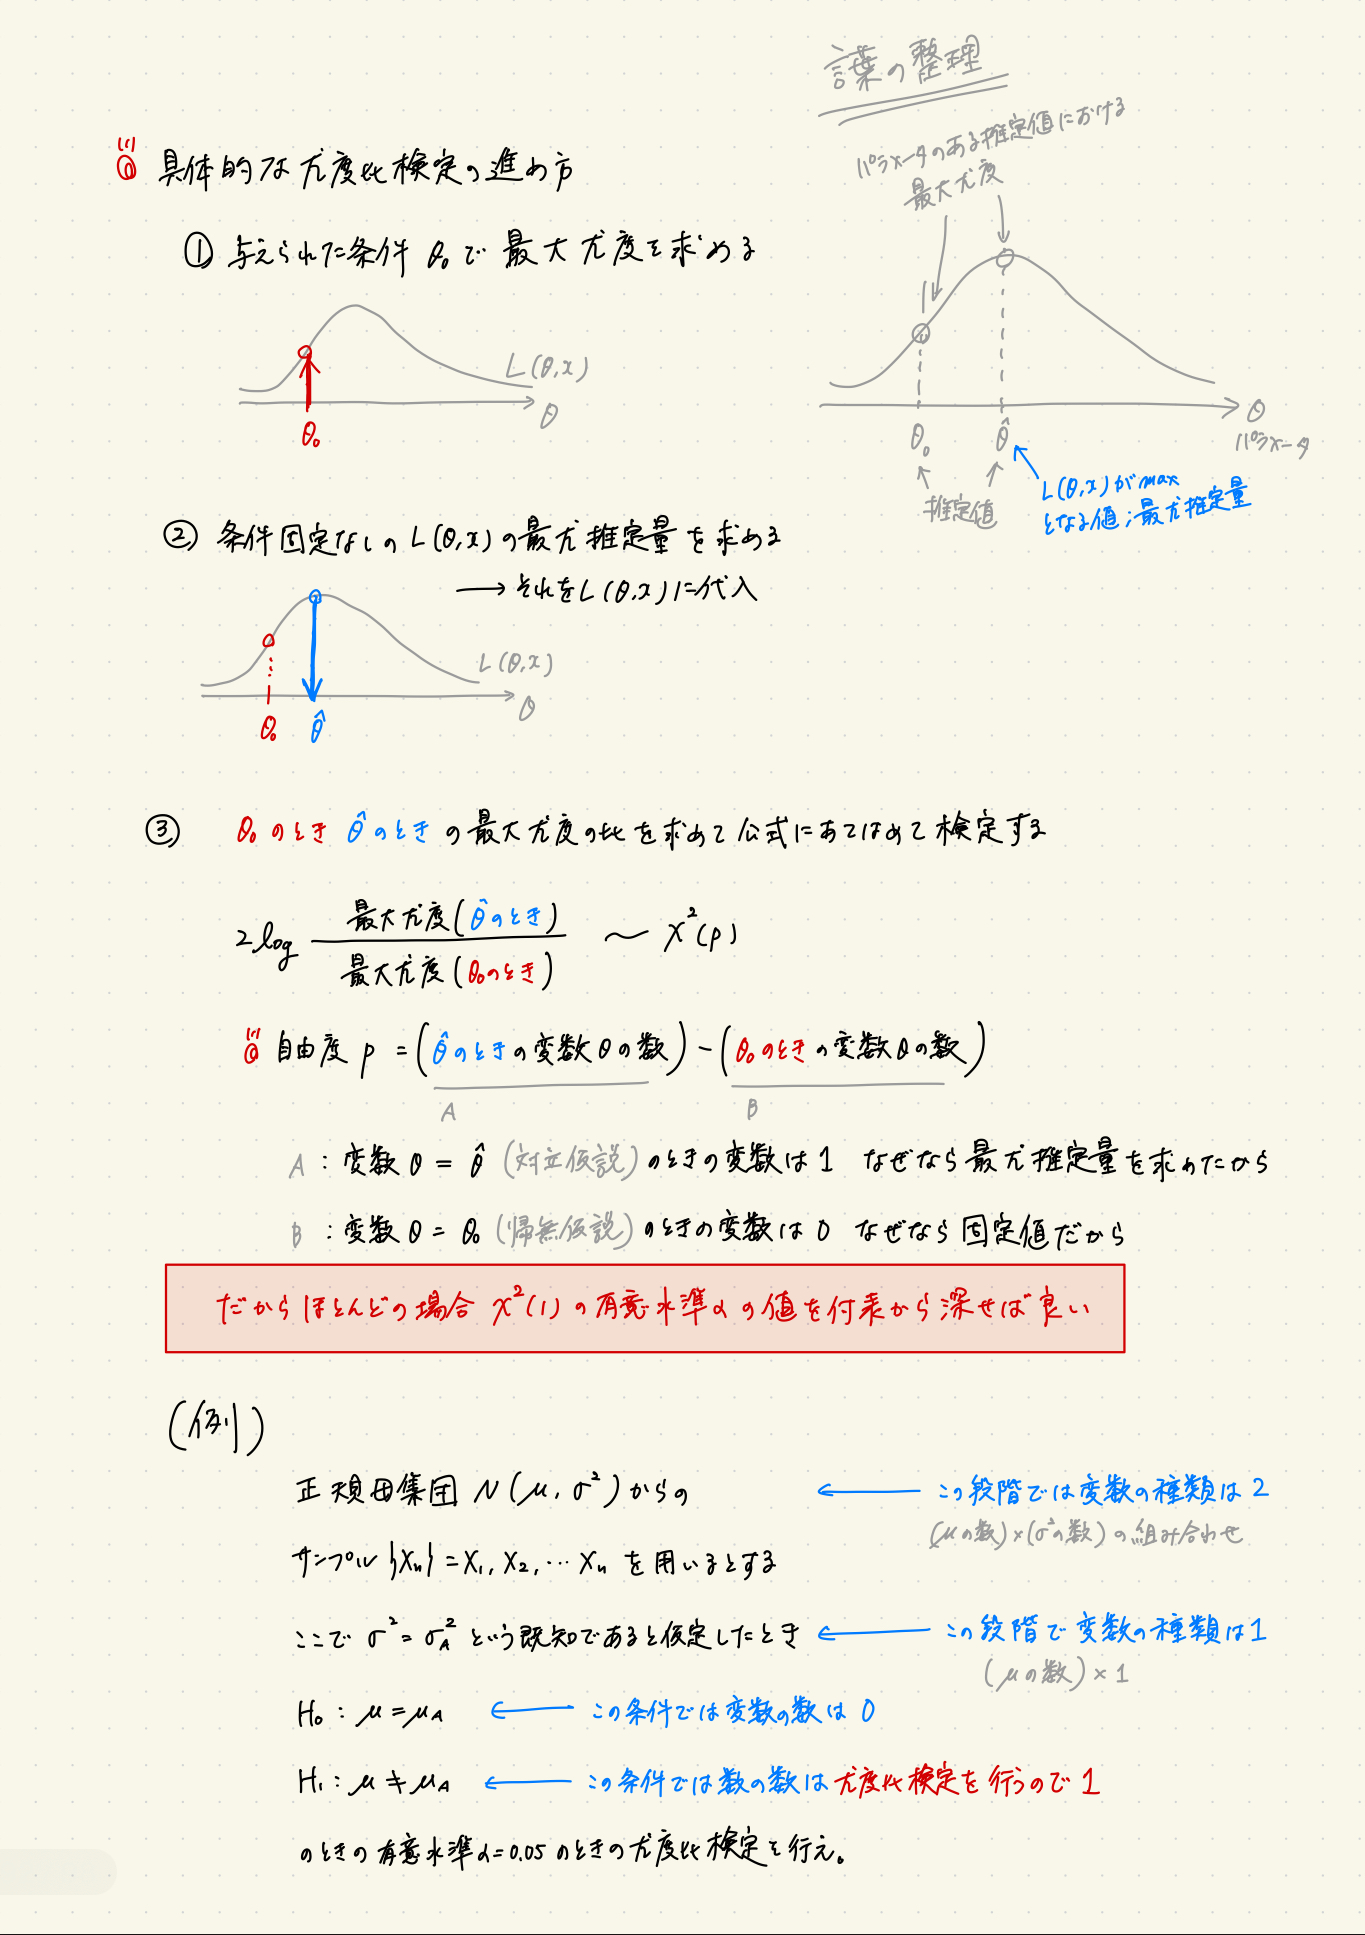 言葉の整理
パラメータのある推定値における
最大尤度
具体的な尤度比検定の進め方
① 与えられた条件 θ₀で 最大尤度を求める
L(θ,x)
θ
θ₀
θ₀ θ̂
θ
パラメータ
推定値
L(θ,x)がmax
となる値;最尤推定量
② 条件固定なしのL(θ,x)の最尤推定量を求める
→ それをL(θ,x)に代入
L(θ,x)
θ
θ₀ θ̂
③ θ₀のとき θ̂のとき の最大尤度の比を求めて公式にあてはめて検定する
2log 最大尤度(θ̂のとき) / 最大尤度(θ₀のとき) ~ χ²(p)
自由度 p = (θ̂のときの変数θの数) - (θ₀のときの変数θの数)
A B
A : 変数θ = θ̂ (対立仮説)のときの変数は1 なぜなら最尤推定量を求めたから
B : 変数θ = θ₀ (帰無仮説)のときの変数は0 なぜなら固定値だから
だからほとんどの場合 χ²(1)の有意水準αの値を付表から深せば良い
(例)
正規母集団 N(μ, σ²)からの ← この段階では変数の種類は2
(μの数)×(σ²の数)の組み合わせ
サンプル{Xn}=X₁, X₂, … Xn を用いるとする
ここでσ²=σ_A² という既知であると仮定したとき ← この段階で変数の種類は1
(μの数)×1
H₀ : μ = μ_A ← この条件では変数の数は0
H₁ : μ ≠ μ_A ← この条件では数の数は尤度比検定を行うので1
のときの有意水準α=0.05のときの尤度比検定を行え。